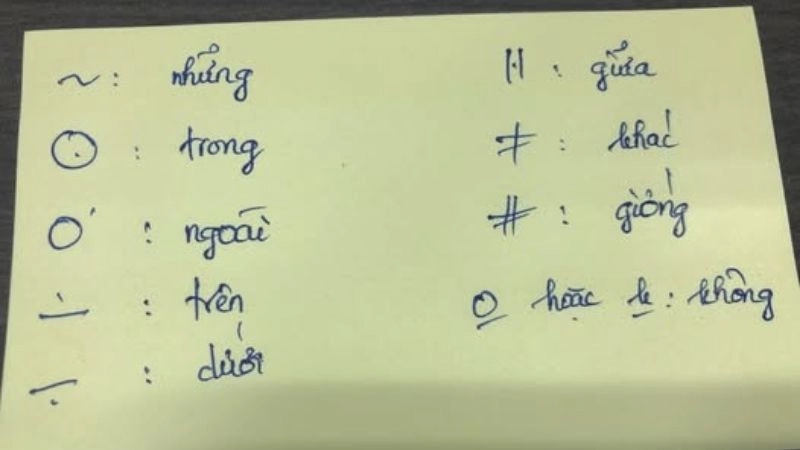 ~ : những
⊙ : trong
O' : ngoài
∸ : trên
⨪ : dưới
|·| : giữa
≠ : khác
# : giống
O̲ hoặc k̲ : không